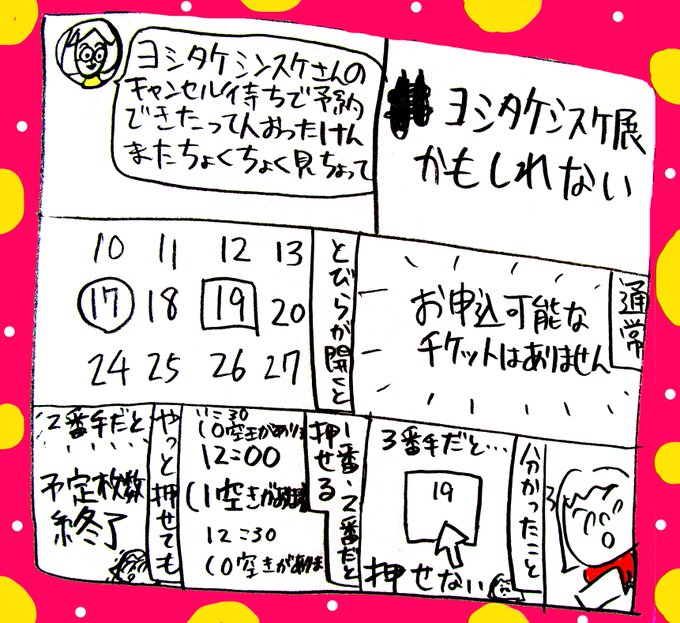 ヨシタケシスケ展
かもしれない
ヨシタケシンスケさんの
キャンセル待ちで予約
できたって人おったけん
またちょくちょく見ちょって
通常
お申込可能な
チケットはありません
とびらが開くと
10 11 12 13
17 18 19 20
24 25 26 27
分かったこと
3番手だと…
19
押せない
1番・2番だと
押せる
11:30
(0空きがありま
12:00
(1空きが
12:30
(0空きがありま
やっと押せても
2番手だと
予定枚数
終了